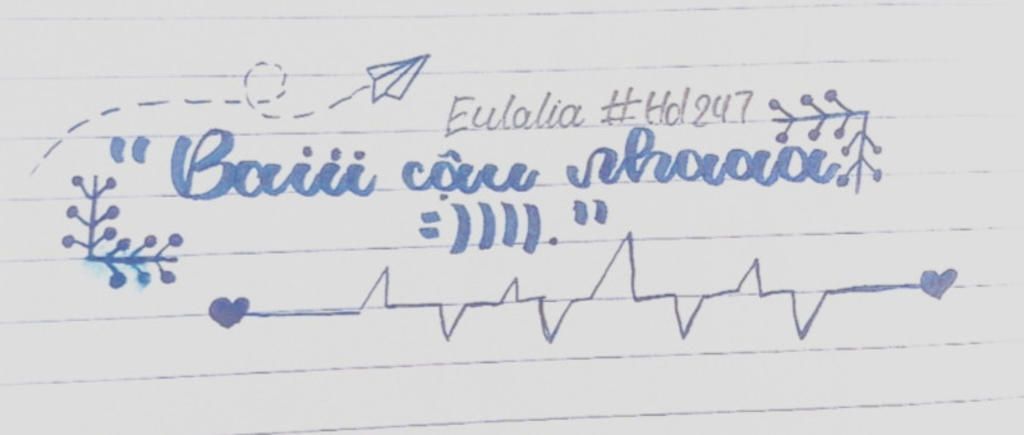 Eulalia #Hd247
"Baiii cậu nhaaaa.
=)))).”